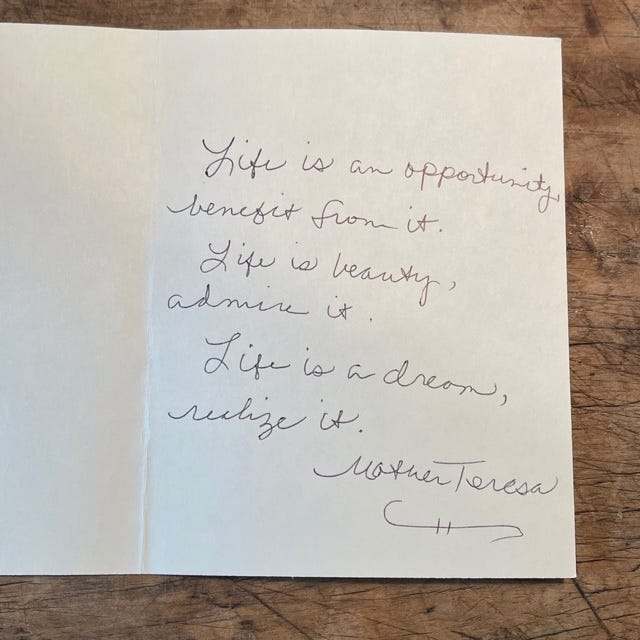 Life is an opportunity,
benefit from it.
Life is beauty,
admire it.
Life is a dream,
realize it.
Mother Teresa